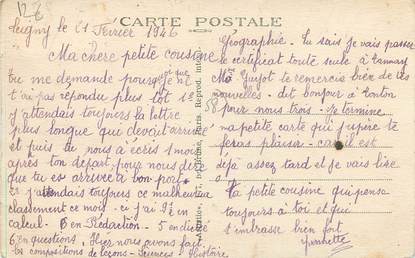 CARTE POSTALE
Cuigny le 21 Février 1946
Ma chère petite cousine
tu me demande pourquoi je ne
t'ai pas répondu plus tot 1º que
j'attendais toujours la lettre
plus longue que devait arriver
et puis tu nous a écris 1 mois
après ton départ pour nous dire
que tu es arrivée a bon port
Et j'attendais toujours ce malheureux
classement ce mois-ci j'ai 9½ en
calcul - 8 en Rédaction - 5 en dictée
6½ en questions. Hier nous avons fait
les compositions de leçons - Sciences - Histoire
Géographie - Tu sais je vais passer
le certificat toute seule à Tannay
Mme Guyot te remercie bien de tes
nouvelles - dit bonjour à Tonton
pour nous trois - Je termine
ma petite carte qui j'espère te
feras plaisir - car il est
déjà assez tard et je vais lire
Ta petite cousine qui pense
toujours à toi et qui
t'embrasse bien fort
Paris. Reprod. inter.